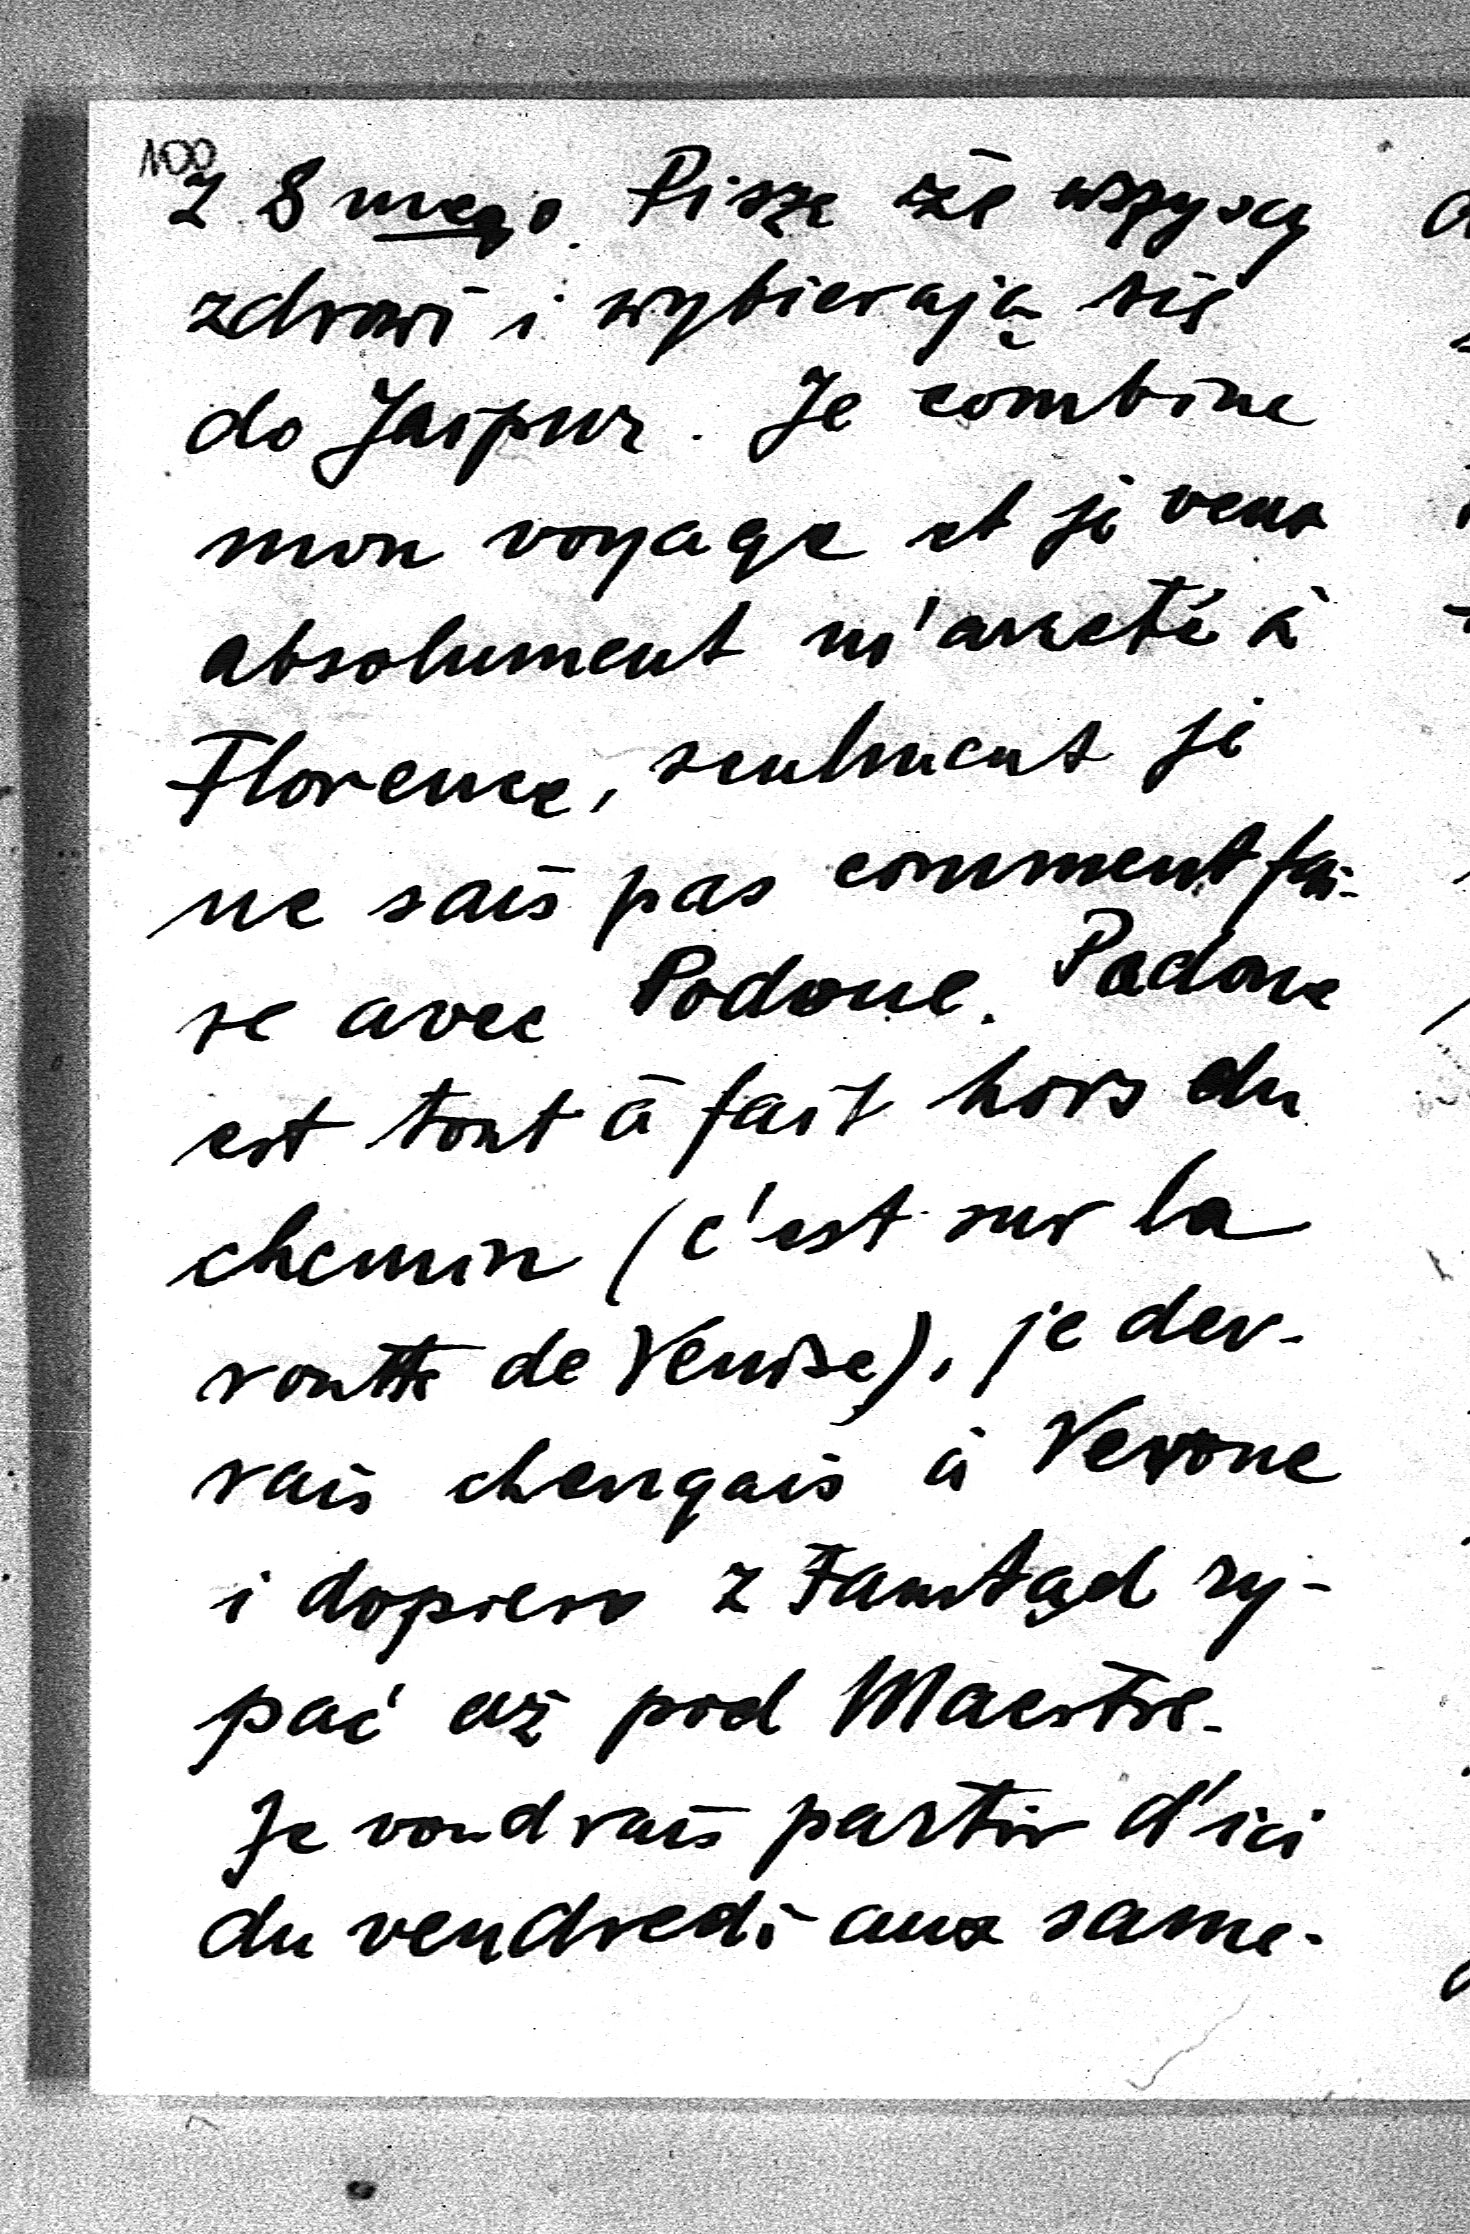 100
z 8 mego. Pisze że wszyscy
zdrowi i wybierają się
do Jaipur. Je combine
mon voyage et je veux
absolument m'arreté à
Florence, seulment je
ne sais pas comment fai-
re avec Padoue. Padoue
est tout à fait hors du
chemin (c'est sur la
routte de Venise), je dev-
rais chengais à Verone
i dopiero z tamtąd ry-
pać aż pod Maestre.
Je voudrais partir d'ici
du vendredi aux same-